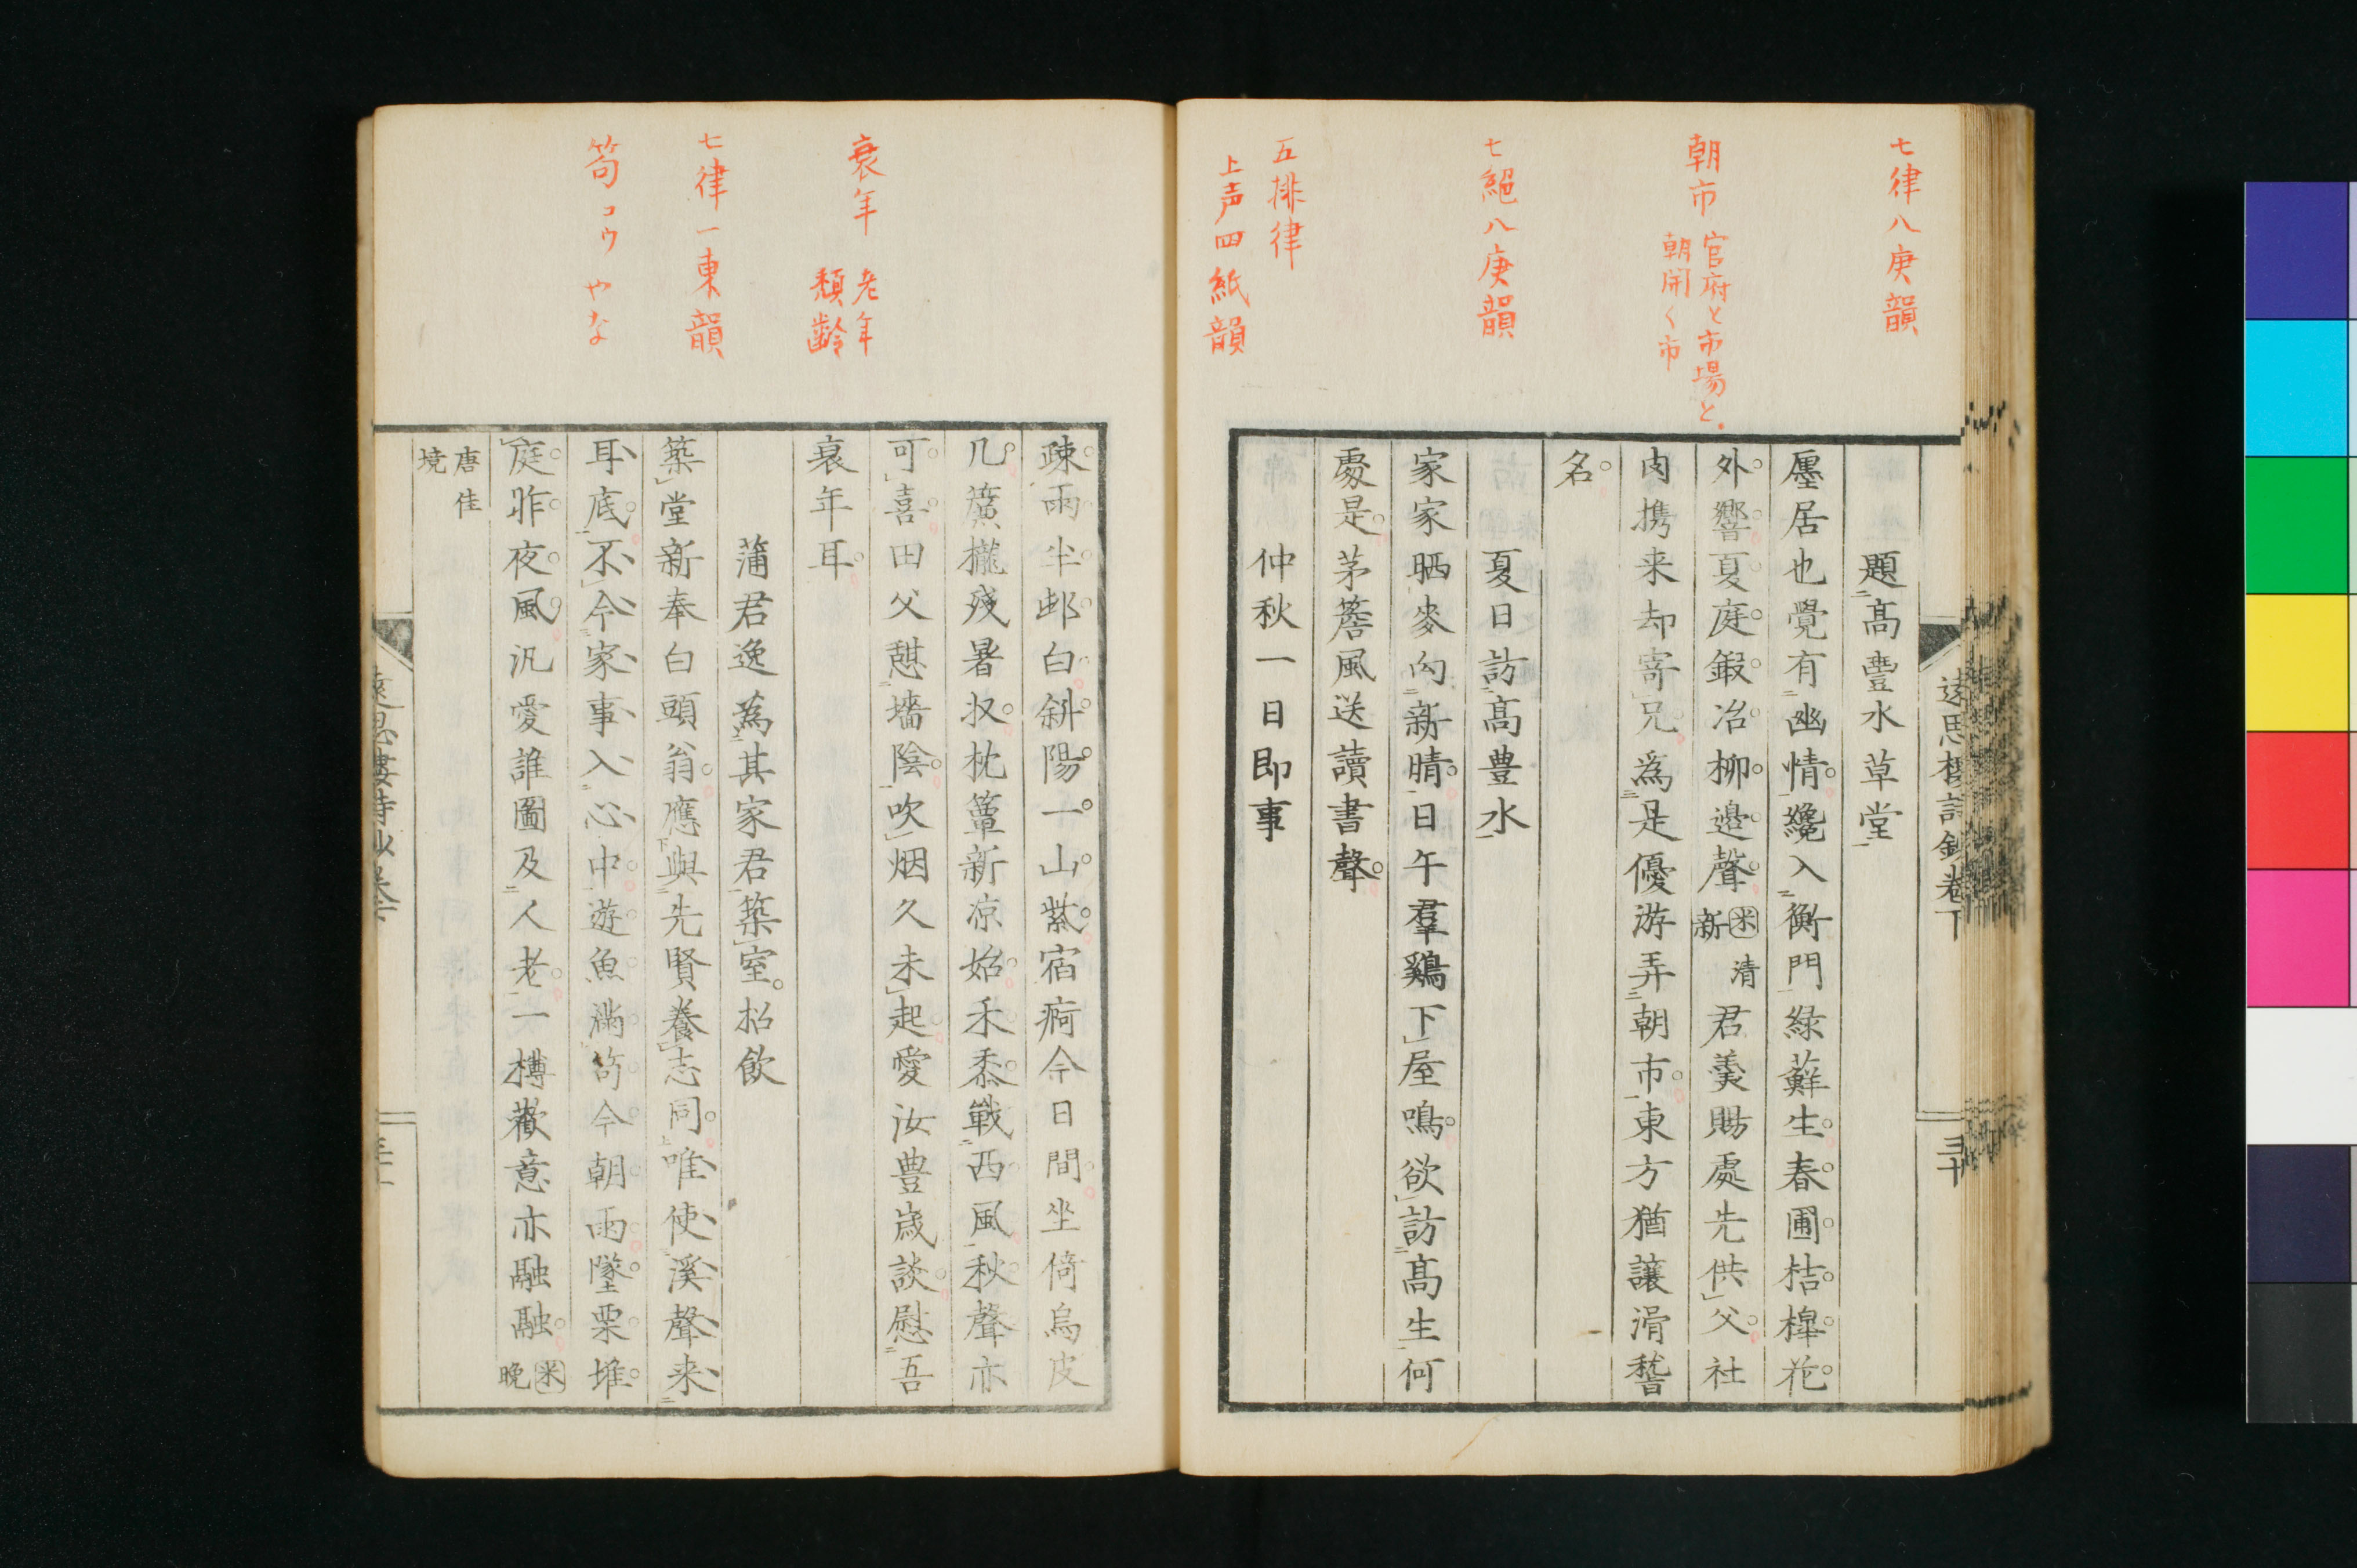 七律八庚韻
朝市 官府と市場と.
朝開く市
七絕八庚韻
五排律
上声四紙韻
遠思樓詩鈔卷下
三十
題高豐水草堂
廛居也覺有幽情纔入衡門綠蘚生春圃桔槹花
外響夏庭鍛冶柳邊聲米清新君羹賜處先供父社
肉携来却寄兄為是優游弄朝市東方猶讓滑稽
名
夏日訪高豊水
家家晒麥向新晴日午羣鷄下屋鳴欲訪高生何
處是茅簷風送讀書聲
仲秋一日即事
衰年 老年
頽齡
七律一東韻
笱コウ やな
疎雨半邨白斜陽一山紫宿痾今日間坐倚烏皮
几簾櫳殘暑収枕簟新凉始禾黍戰西風秋聲亦
可喜田父憇墻陰吹烟久未起愛汝豊歲談慰吾
衰年耳
蒲君逸為其家君築室招飲
築堂新奉白頭翁應與先賢養志同唯使溪聲来
耳底不令家事入心中遊魚滿笱今朝雨墜栗堆
庭昨夜風汎愛誰圖及人老一樽歡意亦融融米晚
唐佳
境
遠思樓詩鈔卷下